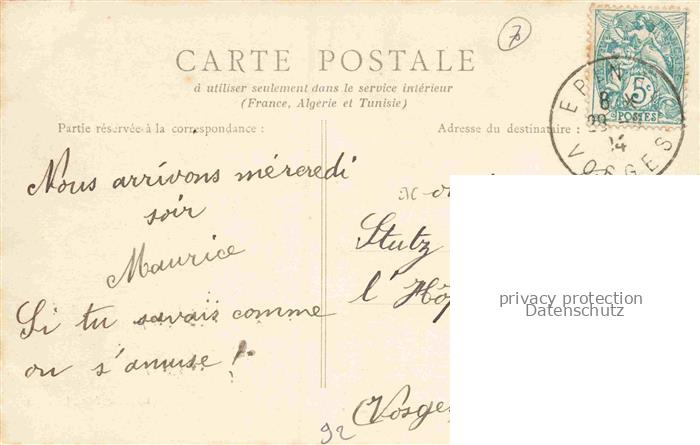 7
CARTE POSTALE
à utiliser seulement dans le service intérieur
(France, Algerie et Tunisie)
Partie réservée à la correspondance :
Adresse du destinataire :
5c
POSTES
EPIN
VOSGES
Nous arrivons mércredi
soir
Maurice
Si tu savais comme
on s'amuse !
Stutz
l'Hôp
Vosges
92
privacy protection
Datenschutz